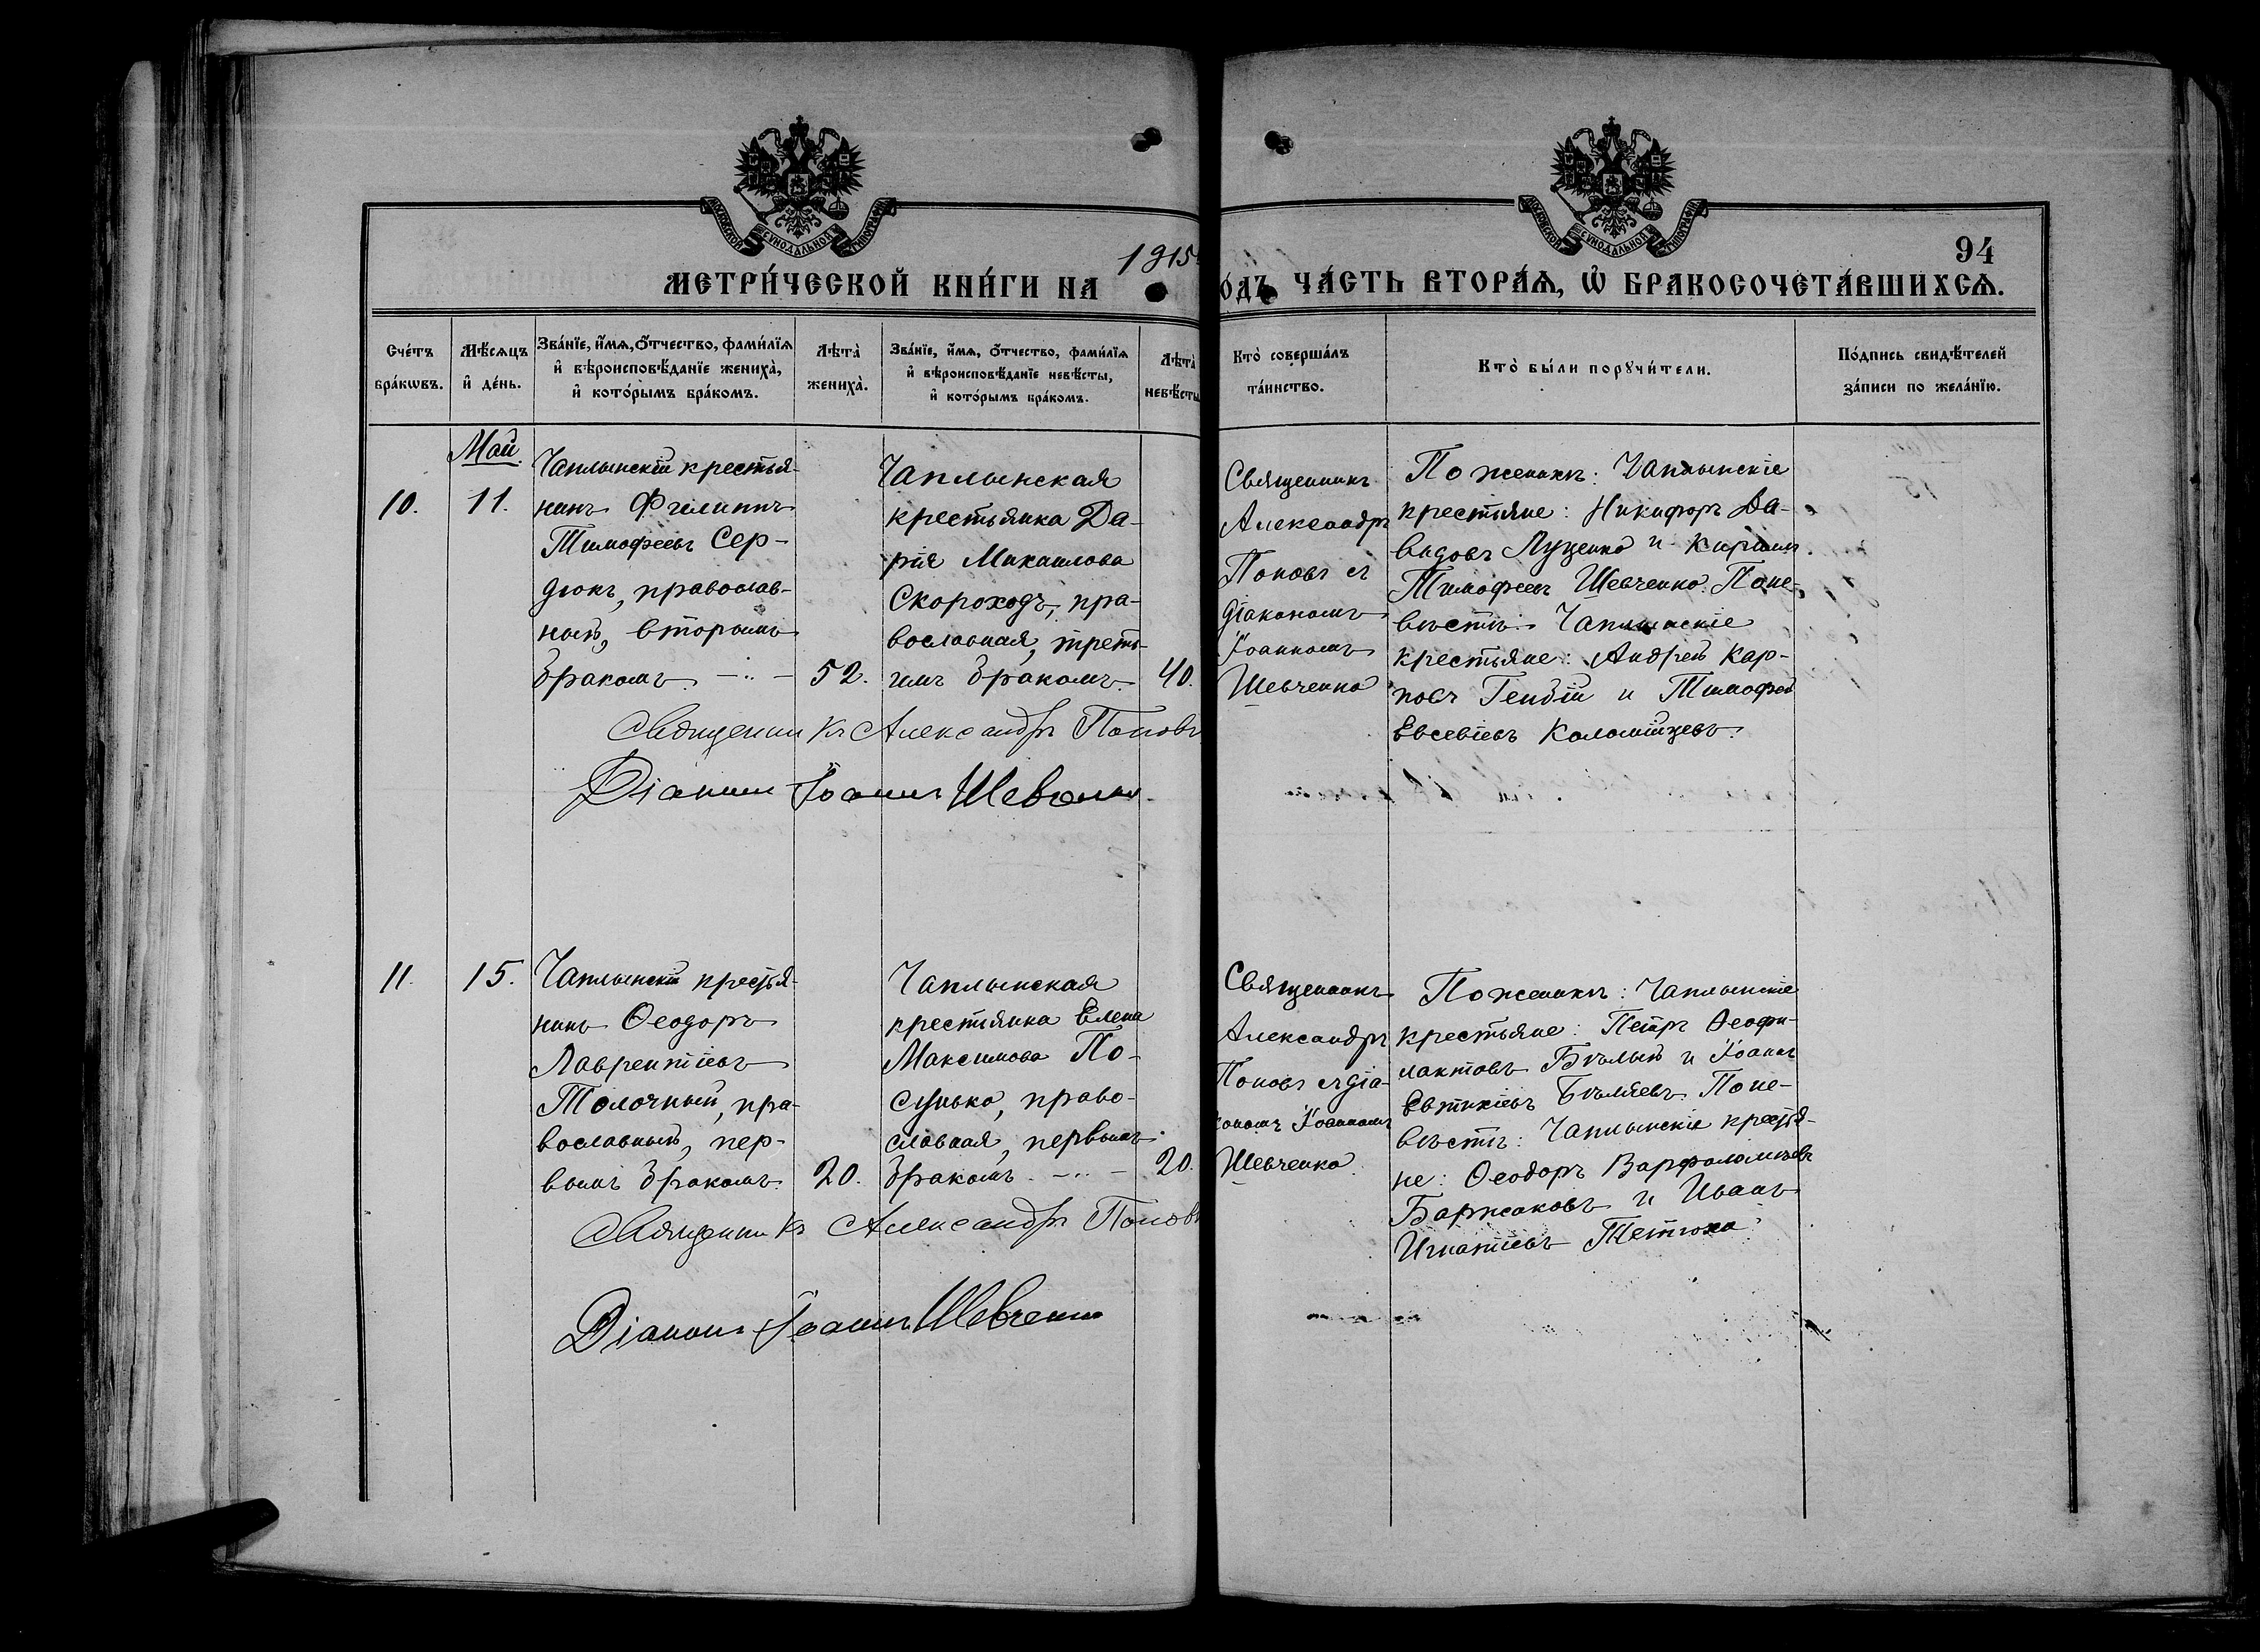 МОСКОВСКОЙ СУНОДАЛЬНОЙ ТИПОГРАФІИ
МОСКОВСКОЙ СУНОДАЛЬНОЙ ТИПОГРАФІИ
1915
94
МЕТРИ́ЧЕСКОЙ КНИ́ГИ НА
о́дъ ЧА́СТЬ ВТОРА́Ѧ, Ѡ҆ БРАКОСОЧЕТА́ВШИХСѦ.
Сче́тъ
бра́кѡвъ.
Мѣ́сѧцъ
и҆ де́нь.
Зва́нїе, и҆́мѧ, ѻ҆́тчество, фами́лїѧ
и҆ вѣроисповѣ́данїе жениха̀,
и҆ кото́рымъ бра́комъ.
Лѣта̀
жениха̀.
Зва́нїе, и҆́мѧ, ѻ҆́тчество, фами́лїѧ
и҆ вѣроисповѣ́данїе невѣ́сты,
и҆ кото́рымъ бра́комъ.
Лѣта̀
невѣ́сты
Кто̀ соверша́лъ
та́инство.
Кто̀ бы́ли порꙋчи́тели.
По́дпись свидѣ́телей
за́писи по жела́нїю.
Май.
10.
11.
Чаплынскій крестья-
нинъ Филиппъ
Тимофеевъ Сер-
дюкъ, православ-
ный, вторымъ
бракомъ.
52.
Чаплынская
крестьянка Да-
рія Михаилова
Скороходъ, пра-
вославная, треть-
имъ бракомъ.
40.
Священникъ
Александръ
Поповъ съ
діакономъ
Іоанномъ
Шевченко
По женихѣ: Чаплынскіе
крестьяне: Никифоръ Да-
видовъ Луценко и Кириллъ
Тимофеевъ Шевченко. По не-
вѣстѣ: Чаплынскіе
крестьяне: Андрей Кар-
повъ Гендій и Тимофей
Евсевіевъ Коломійцевъ.
Священникъ Александръ Поповъ
Діаконъ Іоаннъ Шевченко
11.
15.
Чаплынскій крестья-
нинъ Ѳеодоръ
Лаврентіевъ
Толочный, пра-
вославный, пер-
вымъ бракомъ.
20.
Чаплынская
крестьянка Елена
Максимова По-
сунько, право-
славная, первымъ
бракомъ.
20.
Священникъ
Александръ
Поповъ съ діа-
кономъ Іоанномъ
Шевченко.
По женихѣ: Чаплынскіе
крестьяне: Петръ Ѳеофи-
лактовъ Бѣлый и Іоаннъ
Евтихіевъ Бѣляевъ. По не-
вѣстѣ: Чаплынскіе крестья-
не: Ѳеодоръ Варфоломѣевъ
Баржаковъ и Иванъ
Игнатіевъ Тетюха.
Священникъ Александръ Поповъ
Діаконъ Іоаннъ Шевченко